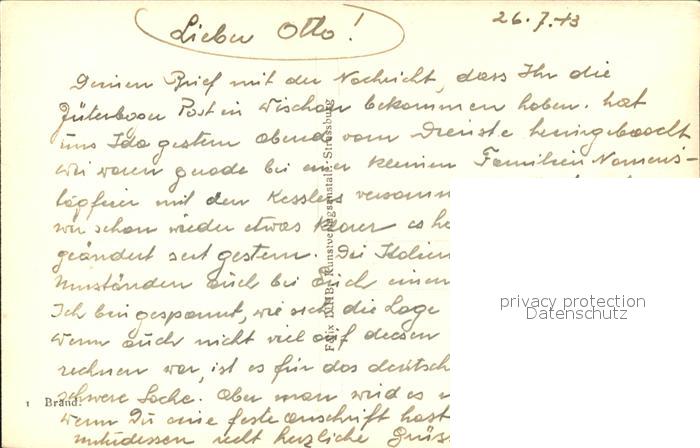 Lieber Otto!
26.7.43
Deinen Brief mit der Nachricht, dass Ihr die
Jüterboger Post in Wischau bekommen haben. hat
uns Ida gestern abend vom Dienste heimgebracht
wir waren gerade bei einer kleinen Familien Namens-
tagfeier mit den Kesslers
wir schon wieder etwas klarer es
geändert seit gestern. Die
Umständen auch bei Euch einen
Ich bin gespannt, wie sich die Lage
wenn auch nicht viel auf diesen
rechnen war, ist es für das deutsch
schwere Sache. Aber man wird es
wenn Du eine feste Anschrift hast
inzwischen recht herzliche Grüss
Felix Kunstverlagsanstalt, Strassburg
1 Brand.
privacy protection
Datenschutz